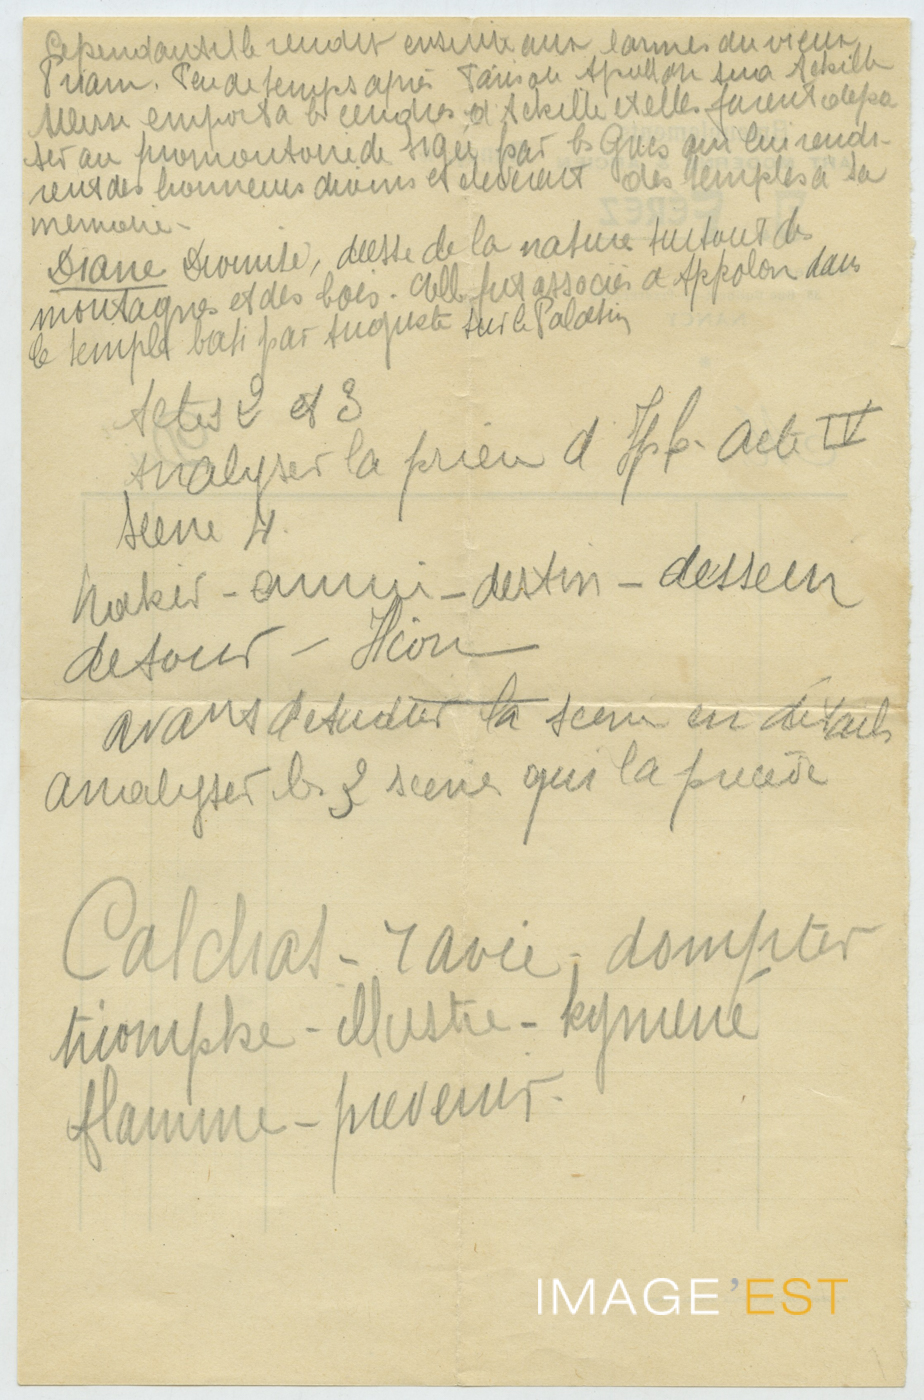 Cependant il le rendit ensuite aux larmes du vieux
Priam. Peu de temps après Paris ou Apollon tua Achille
emporta les cendres d'Achille et elles furent dépo
ser au promontoire de Sigée par les Grecs qui lui rendi-
rent des honneurs divins et élevèrent des temples à sa
memoire -
Diane Divinité, déesse de la nature surtout des
montagnes et des bois. Elle fut associée à Appolon dans
le temple bati par Auguste sur le Palatin
Actes 2 et 3
Analyser la prière d'Iph. Acte IV
Scene 4.
hoker - ennui - destin - dessein
detour - Ilion
avant d'etudier la scene en détails
analyser les 3 scenes qui la précède
Calchas - ravie - dompter
triomphe - illustre - hyméné
flamme - prevenir.
IMAGE'EST